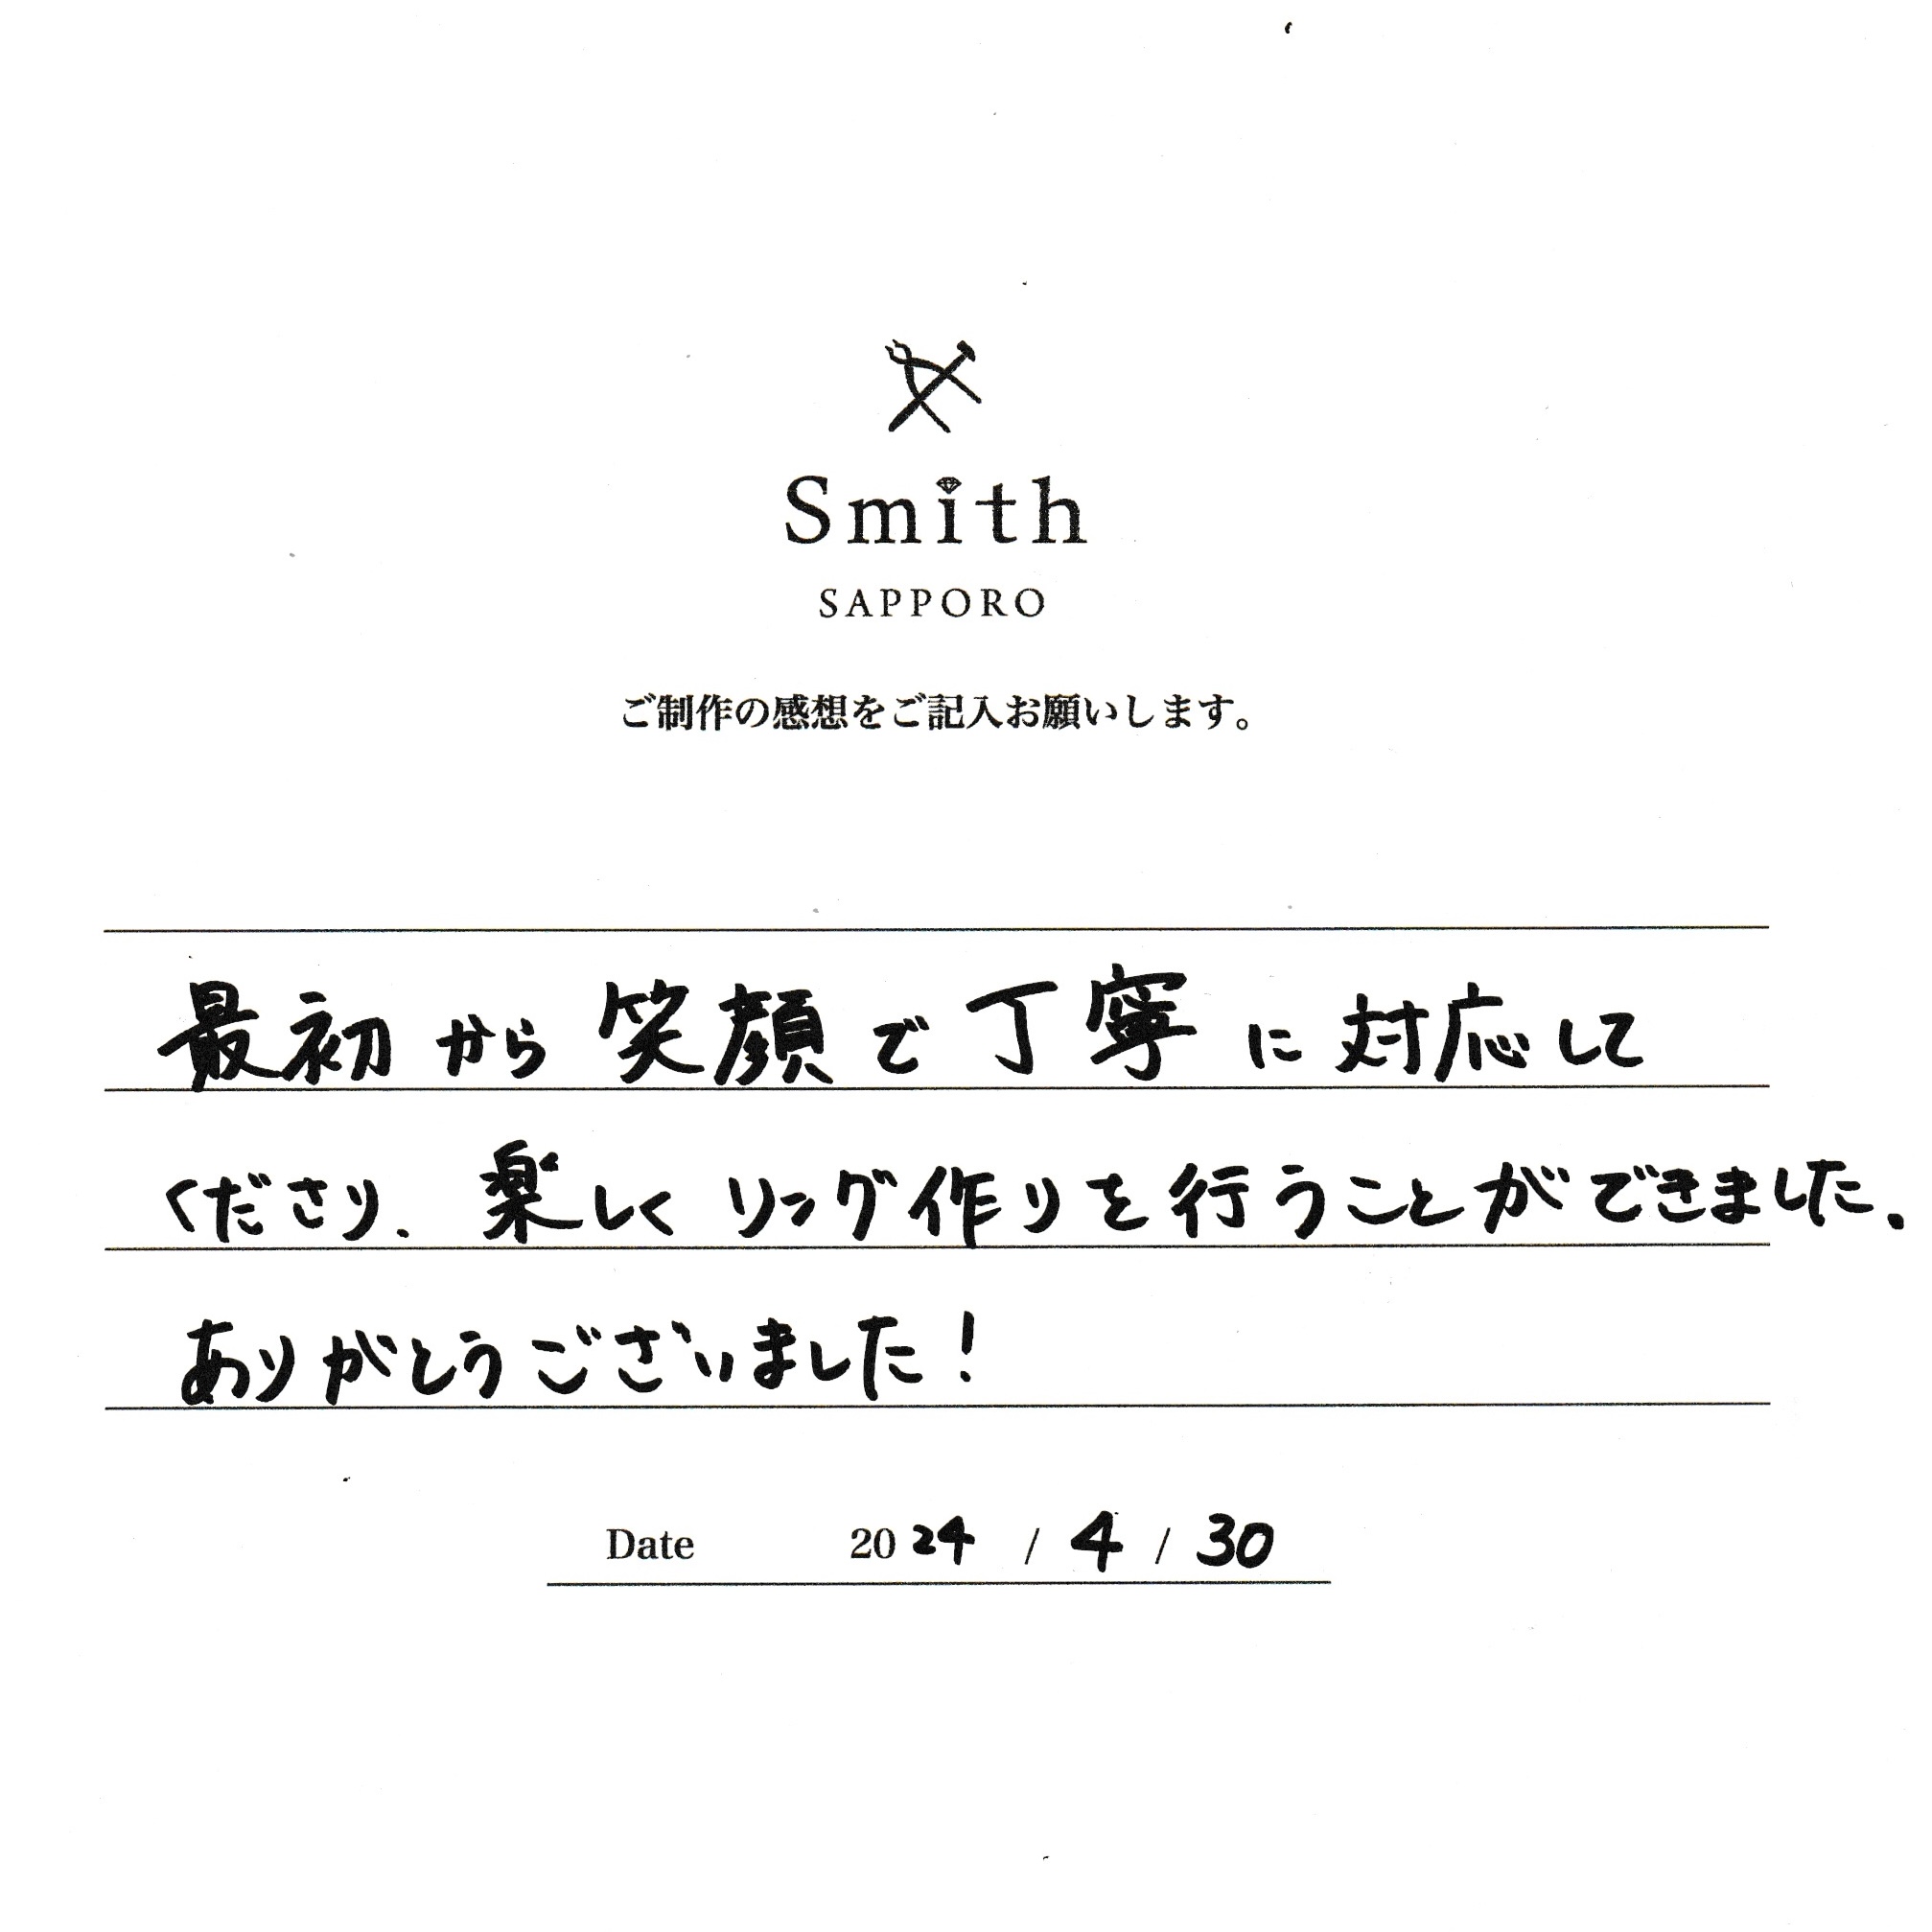 Smith
SAPPORO
ご制作の感想をご記入お願いします。
最初から笑顔で丁寧に対応して
くださり、楽しくリング作りを行うことができました。
ありがとうございました!
Date 2024 / 4 / 30